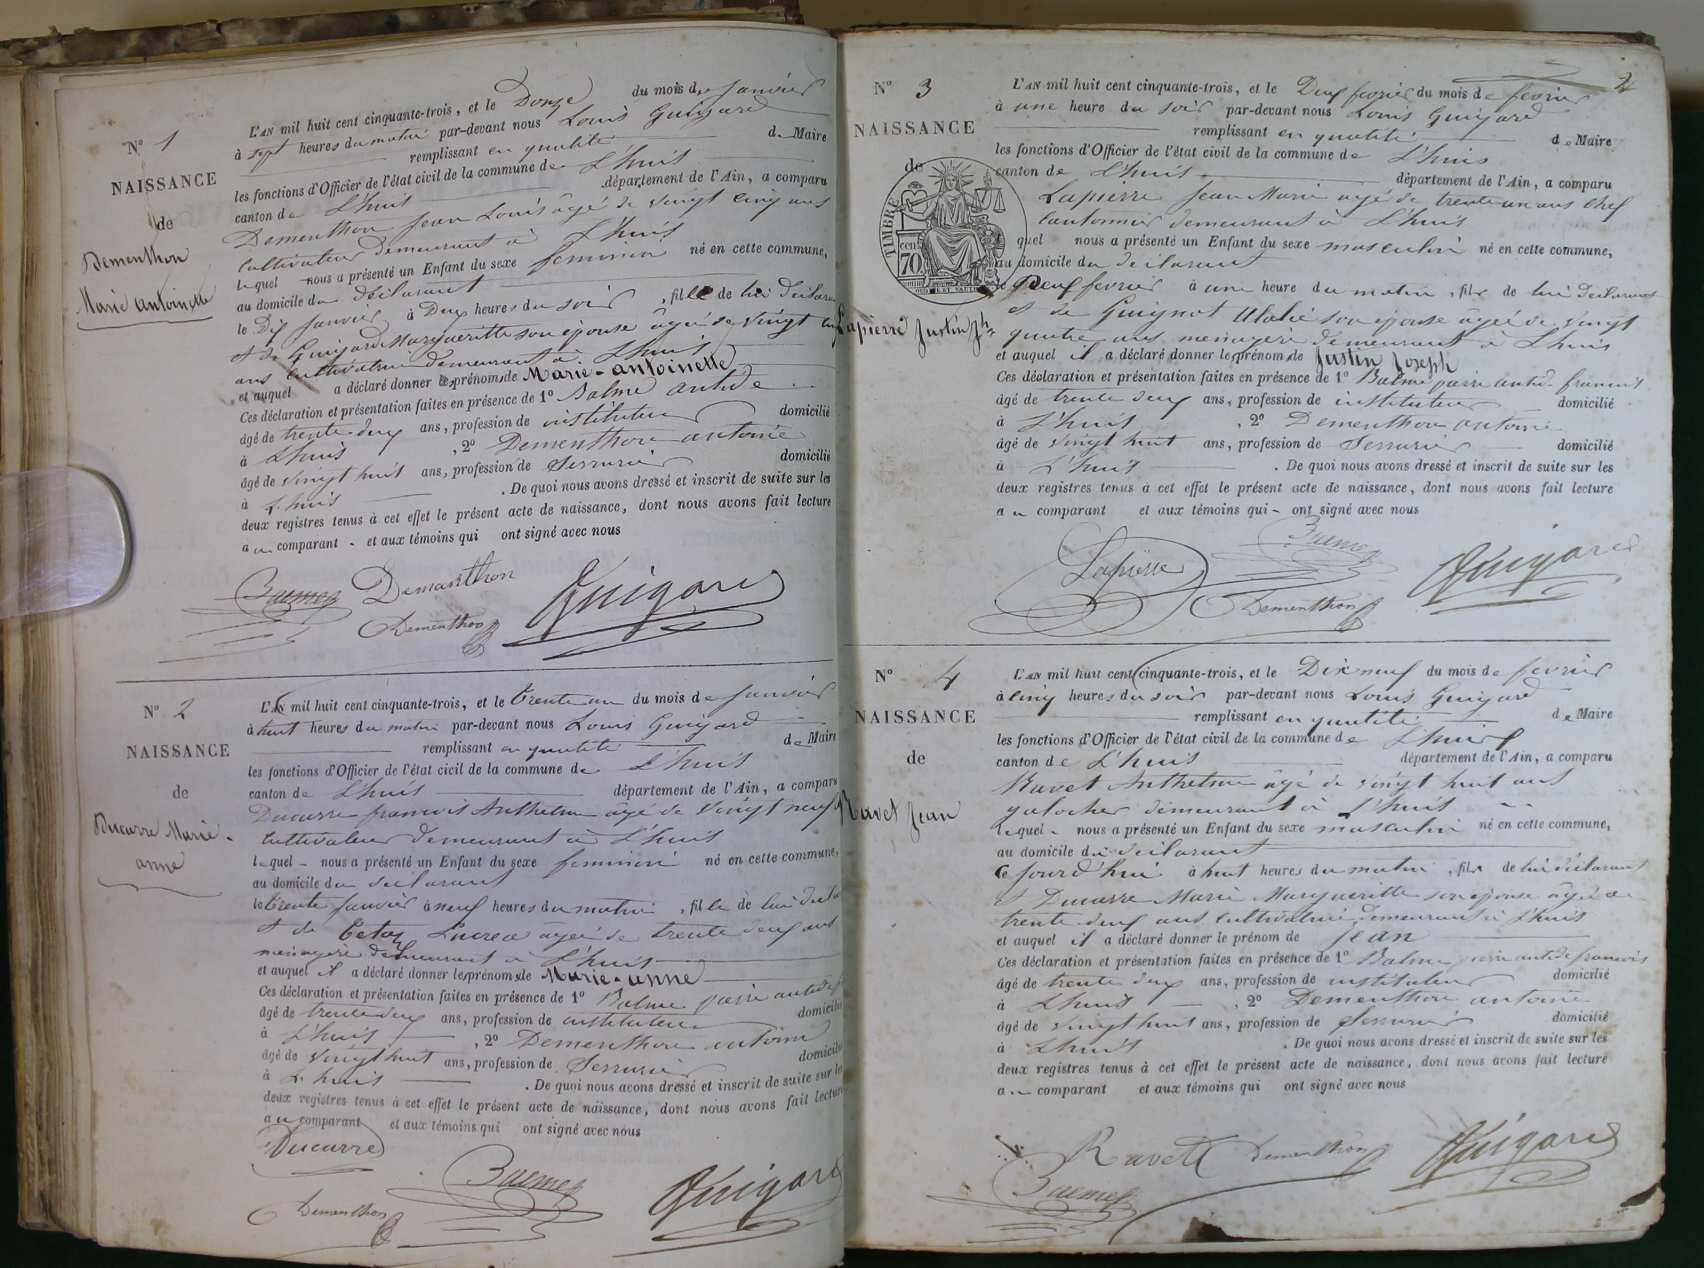 N° 1
NAISSANCE
de
Dementhon
Marie antoinette
L'AN mil huit cent cinquante-trois, et le Douze du mois de janvier
à sept heures du matin par-devant nous Louis Guigard
remplissant en qualité de Maire
les fonctions d'Officier de l'état civil de la commune de L'huis
canton de L'huis département de l'Ain, a comparu
Dementhon jean Louis âgé de vingt cinq ans
cultivateur demeurant à L'huis
lequel nous a présenté un Enfant du sexe feminin né en cette commune,
au domicile du déclarant
le Dix janvier à Deux heures du soir, fille de lui déclarant
et de Guigard Marguerite son épouse âgée de vingt cinq
ans cultivatrice demeurant à L'huis
et auquel a déclaré donner les prénoms de Marie-antoinette
Ces déclaration et présentation faites en présence de 1° Balme antide
âgé de trente deux ans, profession de instituteur domicilié
à L'huis, 2° Dementhon antoine
âgé de vingt huit ans, profession de Serrurier domicilié
à L'huis. De quoi nous avons dressé et inscrit de suite sur les
deux registres tenus à cet effet le présent acte de naissance, dont nous avons fait lecture
au comparant - et aux témoins qui ont signé avec nous
Demanthon
Dementhon
Guigard
N° 2
NAISSANCE
de
Ducarre Marie-
anne
L'AN mil huit cent cinquante-trois, et le trente un du mois de janvier
à huit heures du matin par-devant nous Louis Guigard
remplissant en qualité de Maire
les fonctions d'Officier de l'état civil de la commune de L'huis
canton de L'huis département de l'Ain, a comparu
Ducarre francois Anthelme âgé de vingt neuf
cultivateur demeurant à L'huis
lequel - nous a présenté un Enfant du sexe feminin né en cette commune,
au domicile du déclarant
le trente janvier à neuf heures du matin, fille de lui
et de Lucrece agée de trente deux ans
menagère demeurant à L'huis
et auquel il a déclaré donner les prénoms de Marie-anne
Ces déclaration et présentation faites en présence de 1° Balme pierre antide
âgé de trente deux ans, profession de instituteur domicilié
à L'huis, 2° Dementhon antoine
âgé de vingt huit ans, profession de Serrurier domicilié
à L'huis. De quoi nous avons dressé et inscrit de suite sur les
deux registres tenus à cet effet le présent acte de naissance, dont nous avons fait lecture
au comparant et aux témoins qui ont signé avec nous
Ducarre
Dementhon
Guigard
2
N° 3
NAISSANCE
de
TIMBRE
70
Lapierre Justin Jh
L'AN mil huit cent cinquante-trois, et le Deux fevrier du mois de fevrier
à une heure du soir par-devant nous Louis Guigard
remplissant en qualité de Maire
les fonctions d'Officier de l'état civil de la commune de L'huis
canton de L'huis département de l'Ain, a comparu
Lapierre jean Marie âgé de trente un ans chef
cantonnier demeurant à L'huis
quel nous a présenté un Enfant du sexe masculin né en cette commune,
au domicile du déclarant
le Deux fevrier à une heure du matin, fils de lui déclarant
et de Guignot Ulalie son épouse âgée de vingt
quatre ans menagère demeurant à L'huis
et auquel il a déclaré donner les prénoms de Justin Joseph
Ces déclaration et présentation faites en présence de 1° Balme pierre antide francois
âgé de trente deux ans, profession de instituteur domicilié
à L'huis, 2° Dementhon antoine
âgé de vingt huit ans, profession de Serrurier domicilié
à L'huis. De quoi nous avons dressé et inscrit de suite sur les
deux registres tenus à cet effet le présent acte de naissance, dont nous avons fait lecture
au comparant et aux témoins qui - ont signé avec nous
Lapierre
Dementhon
Guigard
N° 4
NAISSANCE
de
Ravet Jean
L'AN mil huit cent cinquante-trois, et le Dix neuf du mois de fevrier
à cinq heures du soir par-devant nous Louis Guigard
remplissant en qualité de Maire
les fonctions d'Officier de l'état civil de la commune de L'huis
canton de L'huis département de l'Ain, a comparu
Ravet Anthelme âgé de vingt huit ans
galocher demeurant à L'huis
lequel - nous a présenté un Enfant du sexe masculin né en cette commune,
au domicile du déclarant
ce jourd'hui à huit heures du matin, fils de lui déclarant
et Ducarre Marie Marguerite son épouse âgée de
trente deux ans cultivatrice demeurant à L'huis
et auquel il a déclaré donner le prénom de jean
Ces déclaration et présentation faites en présence de 1° Balme pierre antide francois
âgé de trente deux ans, profession de instituteur domicilié
à L'huis, 2° Dementhon antoine
âgé de vingt huit ans, profession de Serrurier domicilié
à L'huis. De quoi nous avons dressé et inscrit de suite sur les
deux registres tenus à cet effet le présent acte de naissance, dont nous avons fait lecture
au comparant et aux témoins qui ont signé avec nous
Ravet
Dementhon
Guigard